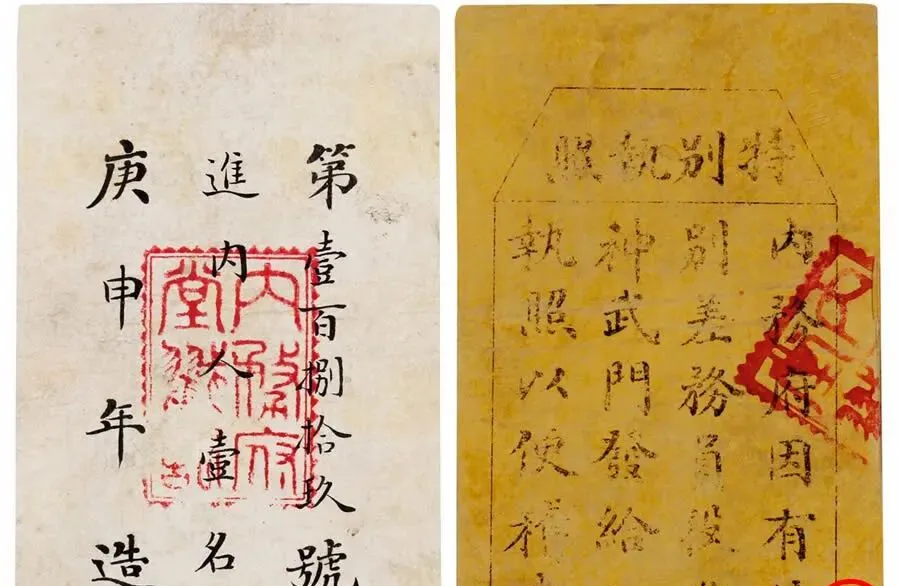 第壹百捌拾玖號
進內人壹名
庚申年造
內務府
堂
特別執照
內務府因有
別差務員役
神武門發給
執照以便稽